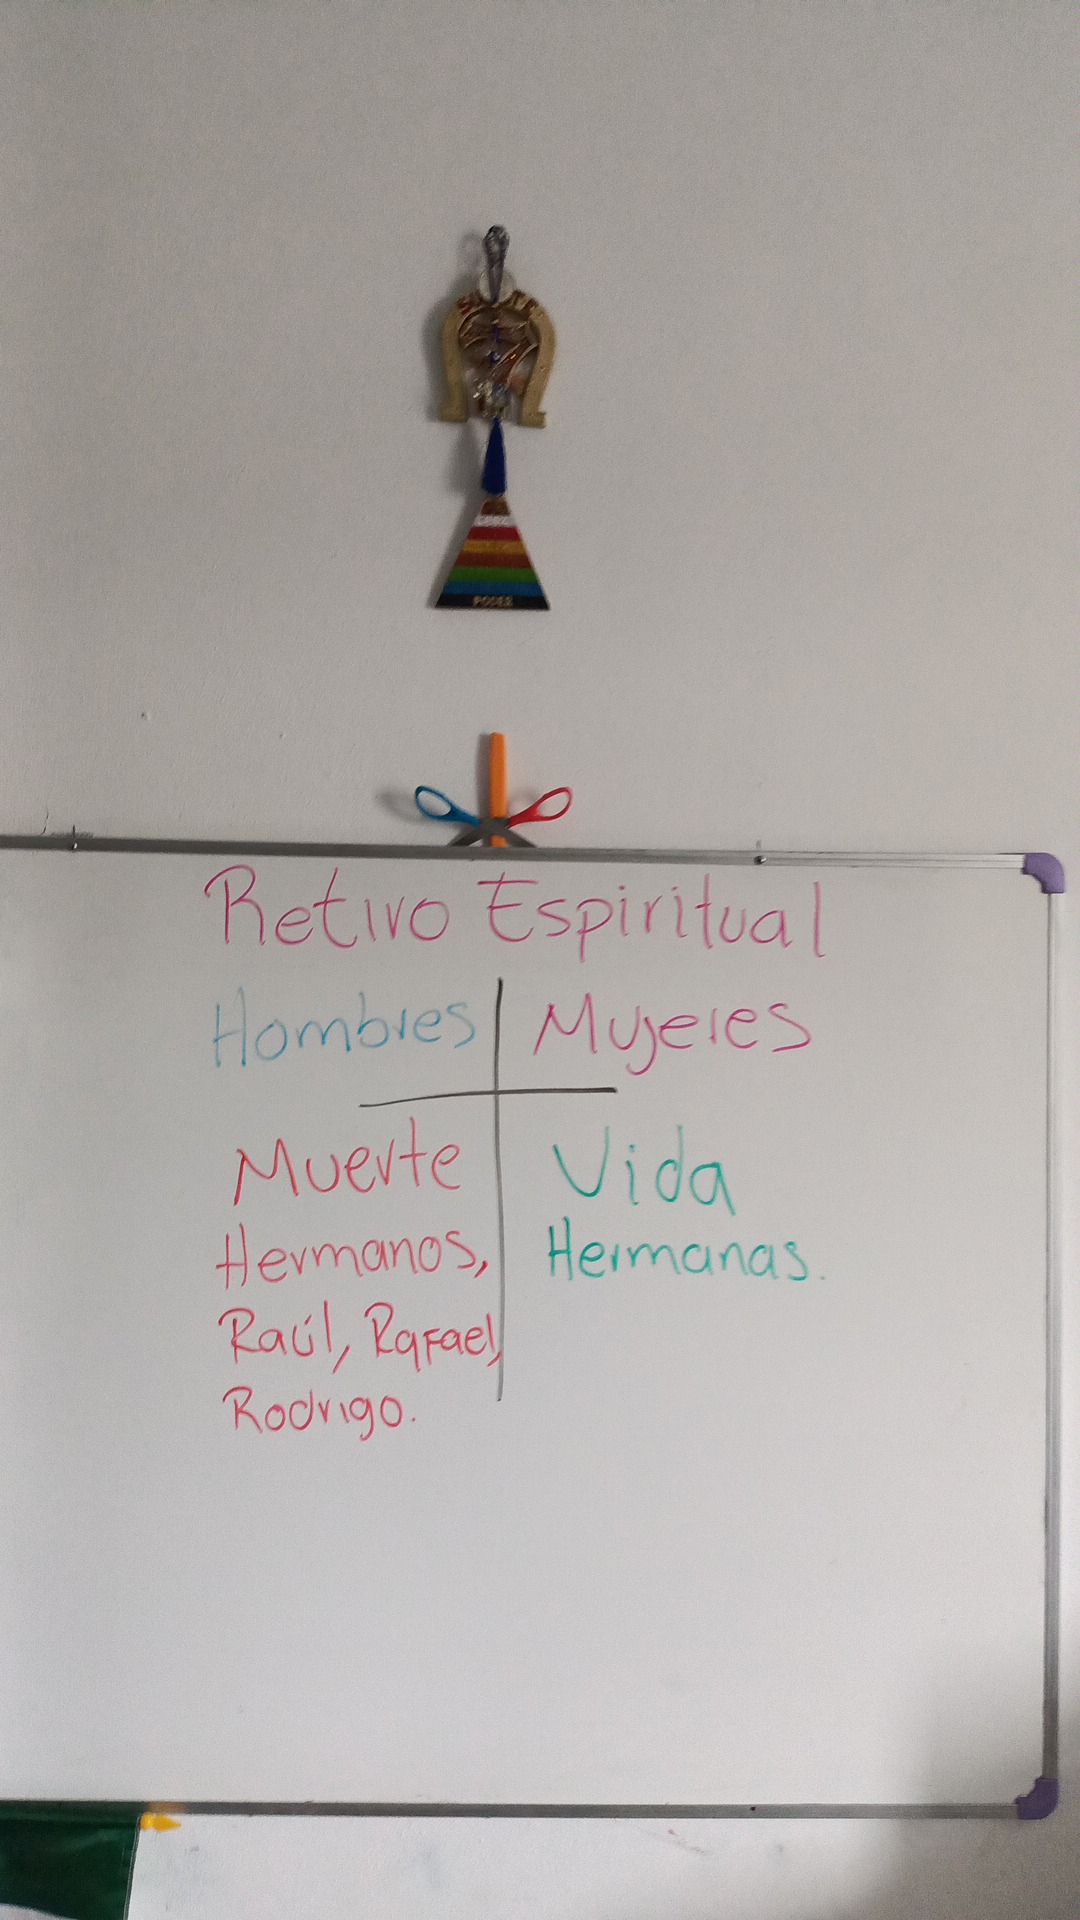 PODER
Retiro Espiritual
Hombres Mujeres
Muerte Vida
Hermanos, Hermanas.
Raúl, Rafael,
Rodrigo.